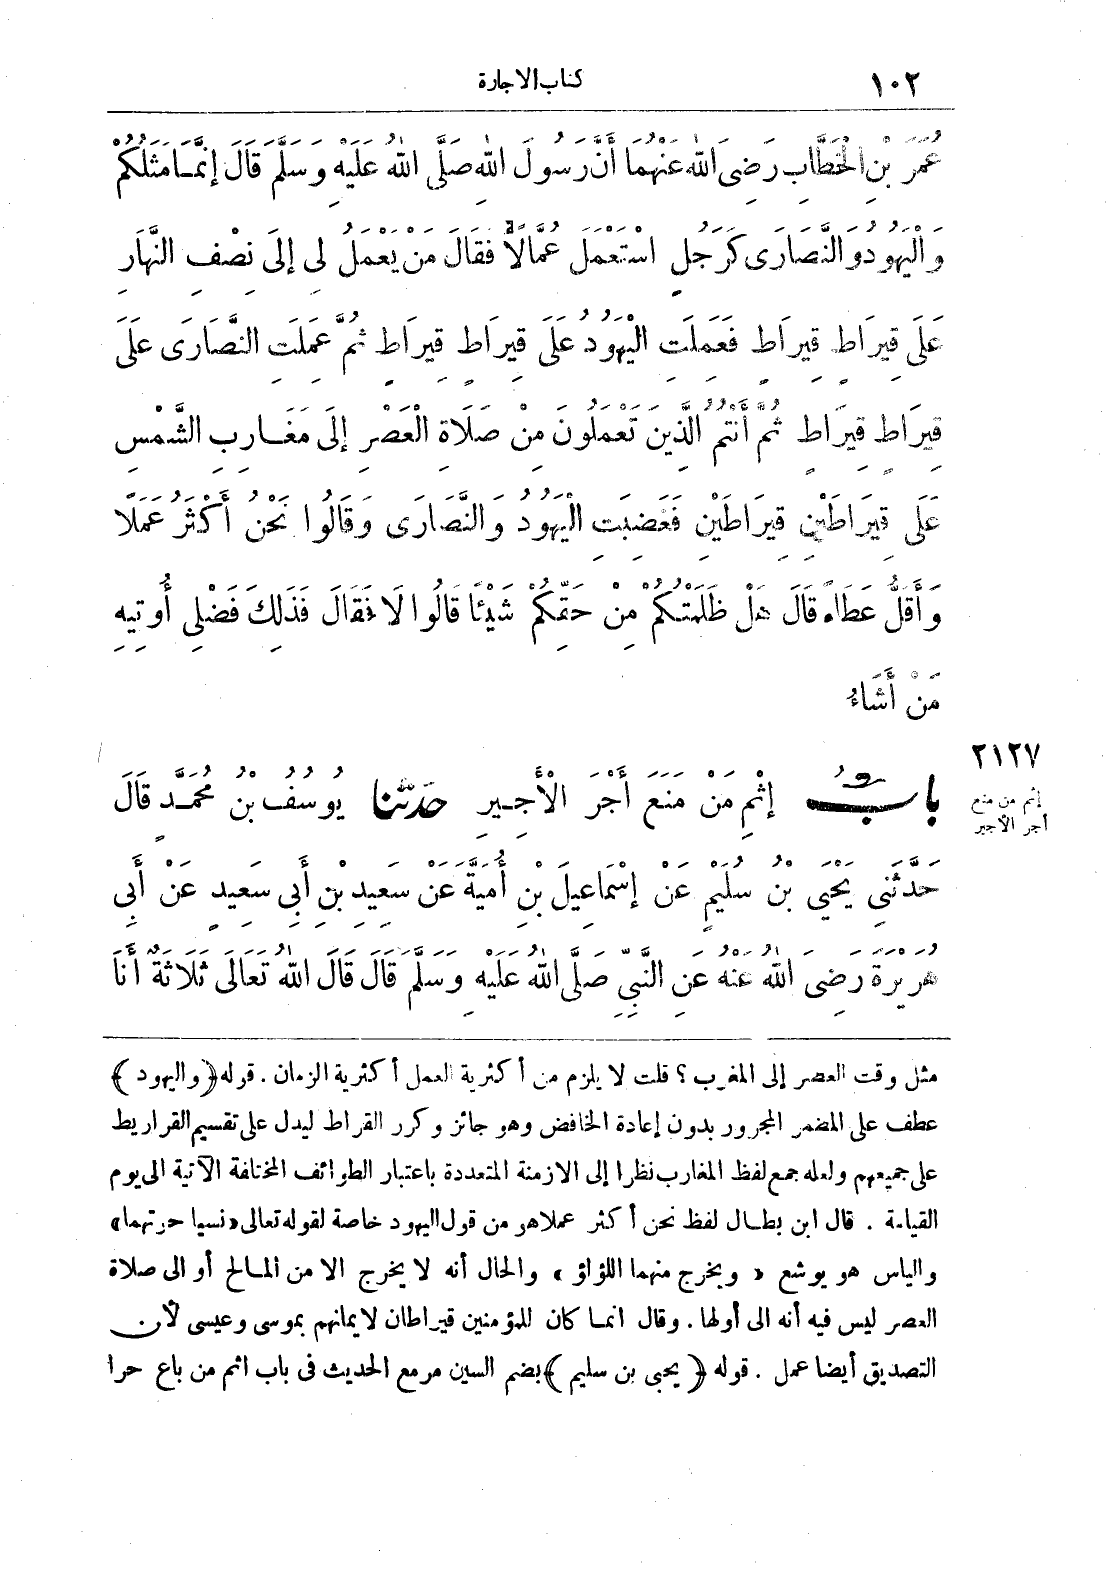 ١٠٢
كتاب الاجارة
عُمَرَ بْنِ الْخَطَّابِ رَضِىَ اللهُ عَنْهُمَا أَنَّ رَسُولَ اللهِ صَلَّى اللهُ عَلَيْهِ وَسَلَّمَ قَالَ إِنَّمَا مَثَلُكُمْ
وَالْيَهُودُ وَالنَّصَارَى كَرَجُلٍ اسْتَعْمَلَ عُمَّالًا فَقَالَ مَنْ يَعْمَلُ لِى إِلَى نِصْفِ النَّهَارِ
عَلَى قِيرَاطٍ قِيرَاطٍ فَعَمِلَتِ الْيَهُودُ عَلَى قِيرَاطٍ قِيرَاطٍ ثُمَّ عَمِلَتِ النَّصَارَى عَلَى
قِيرَاطٍ قِيرَاطٍ ثُمَّ أَنْتُمُ الَّذِينَ تَعْمَلُونَ مِنْ صَلَاةِ الْعَصْرِ إِلَى مَغَارِبِ الشَّمْسِ
عَلَى قِيرَاطَيْنِ قِيرَاطَيْنِ فَغَضِبَتِ الْيَهُودُ وَالنَّصَارَى وَقَالُوا نَحْنُ أَكْثَرُ عَمَلًا
وَأَقَلُّ عَطَاءً قَالَ هَلْ ظَلَمْتُكُمْ مِنْ حَقِّكُمْ شَيْئًا قَالُوا لَا فَقَالَ فَذَلِكَ فَضْلِى أُوتِيهِ
مَنْ أَشَاءُ
٢١٢٧
إثم من منع
أجر الأجير
بابُ إِثْمِ مَنْ مَنَعَ أَجْرَ الْأَجِيرِ حَدَّثَنَا يُوسُفُ بْنُ مُحَمَّدٍ قَالَ
حَدَّثَنِى يَحْيَى بْنُ سُلَيْمٍ عَنْ إِسْمَاعِيلَ بْنِ أُمَيَّةَ عَنْ سَعِيدِ بْنِ أَبِى سَعِيدٍ عَنْ أَبِى
هُرَيْرَةَ رَضِىَ اللهُ عَنْهُ عَنِ النَّبِىِّ صَلَّى اللهُ عَلَيْهِ وَسَلَّمَ قَالَ قَالَ اللهُ تَعَالَى ثَلَاثَةٌ أَنَا
مثل وقت العصر إلى المغرب ؟ قلت لا يلزم من أكثرية العمل أكثرية الزمان . قوله ﴿ واليهود ﴾
عطف على المضمر المجرور بدون إعادة الخافض وهو جائز وكرر القراط ليدل على تقسيم القراريط
على جميعهم ولعله جمع لفظ المغارب نظرا إلى الازمنة المتعددة باعتبار الطوائف المختلفة الآتية الى يوم
القيامة . قال ابن بطال لفظ نحن أكثر عملا هو من قول اليهود خاصة لقوله تعالى «نسيا حوتهما»
والياس هو يوشع « ويخرج منهما اللؤلؤ » والحال أنه لا يخرج الا من المالح أو الى صلاة
العصر ليس فيه أنه الى أولها . وقال انما كان للمؤمنين قيراطان لايمانهم بموسى وعيسى لأن
التصديق أيضا عمل . قوله ﴿ يحيى بن سليم ﴾ بضم السين مر مع الحديث فى باب اثم من باع حرا